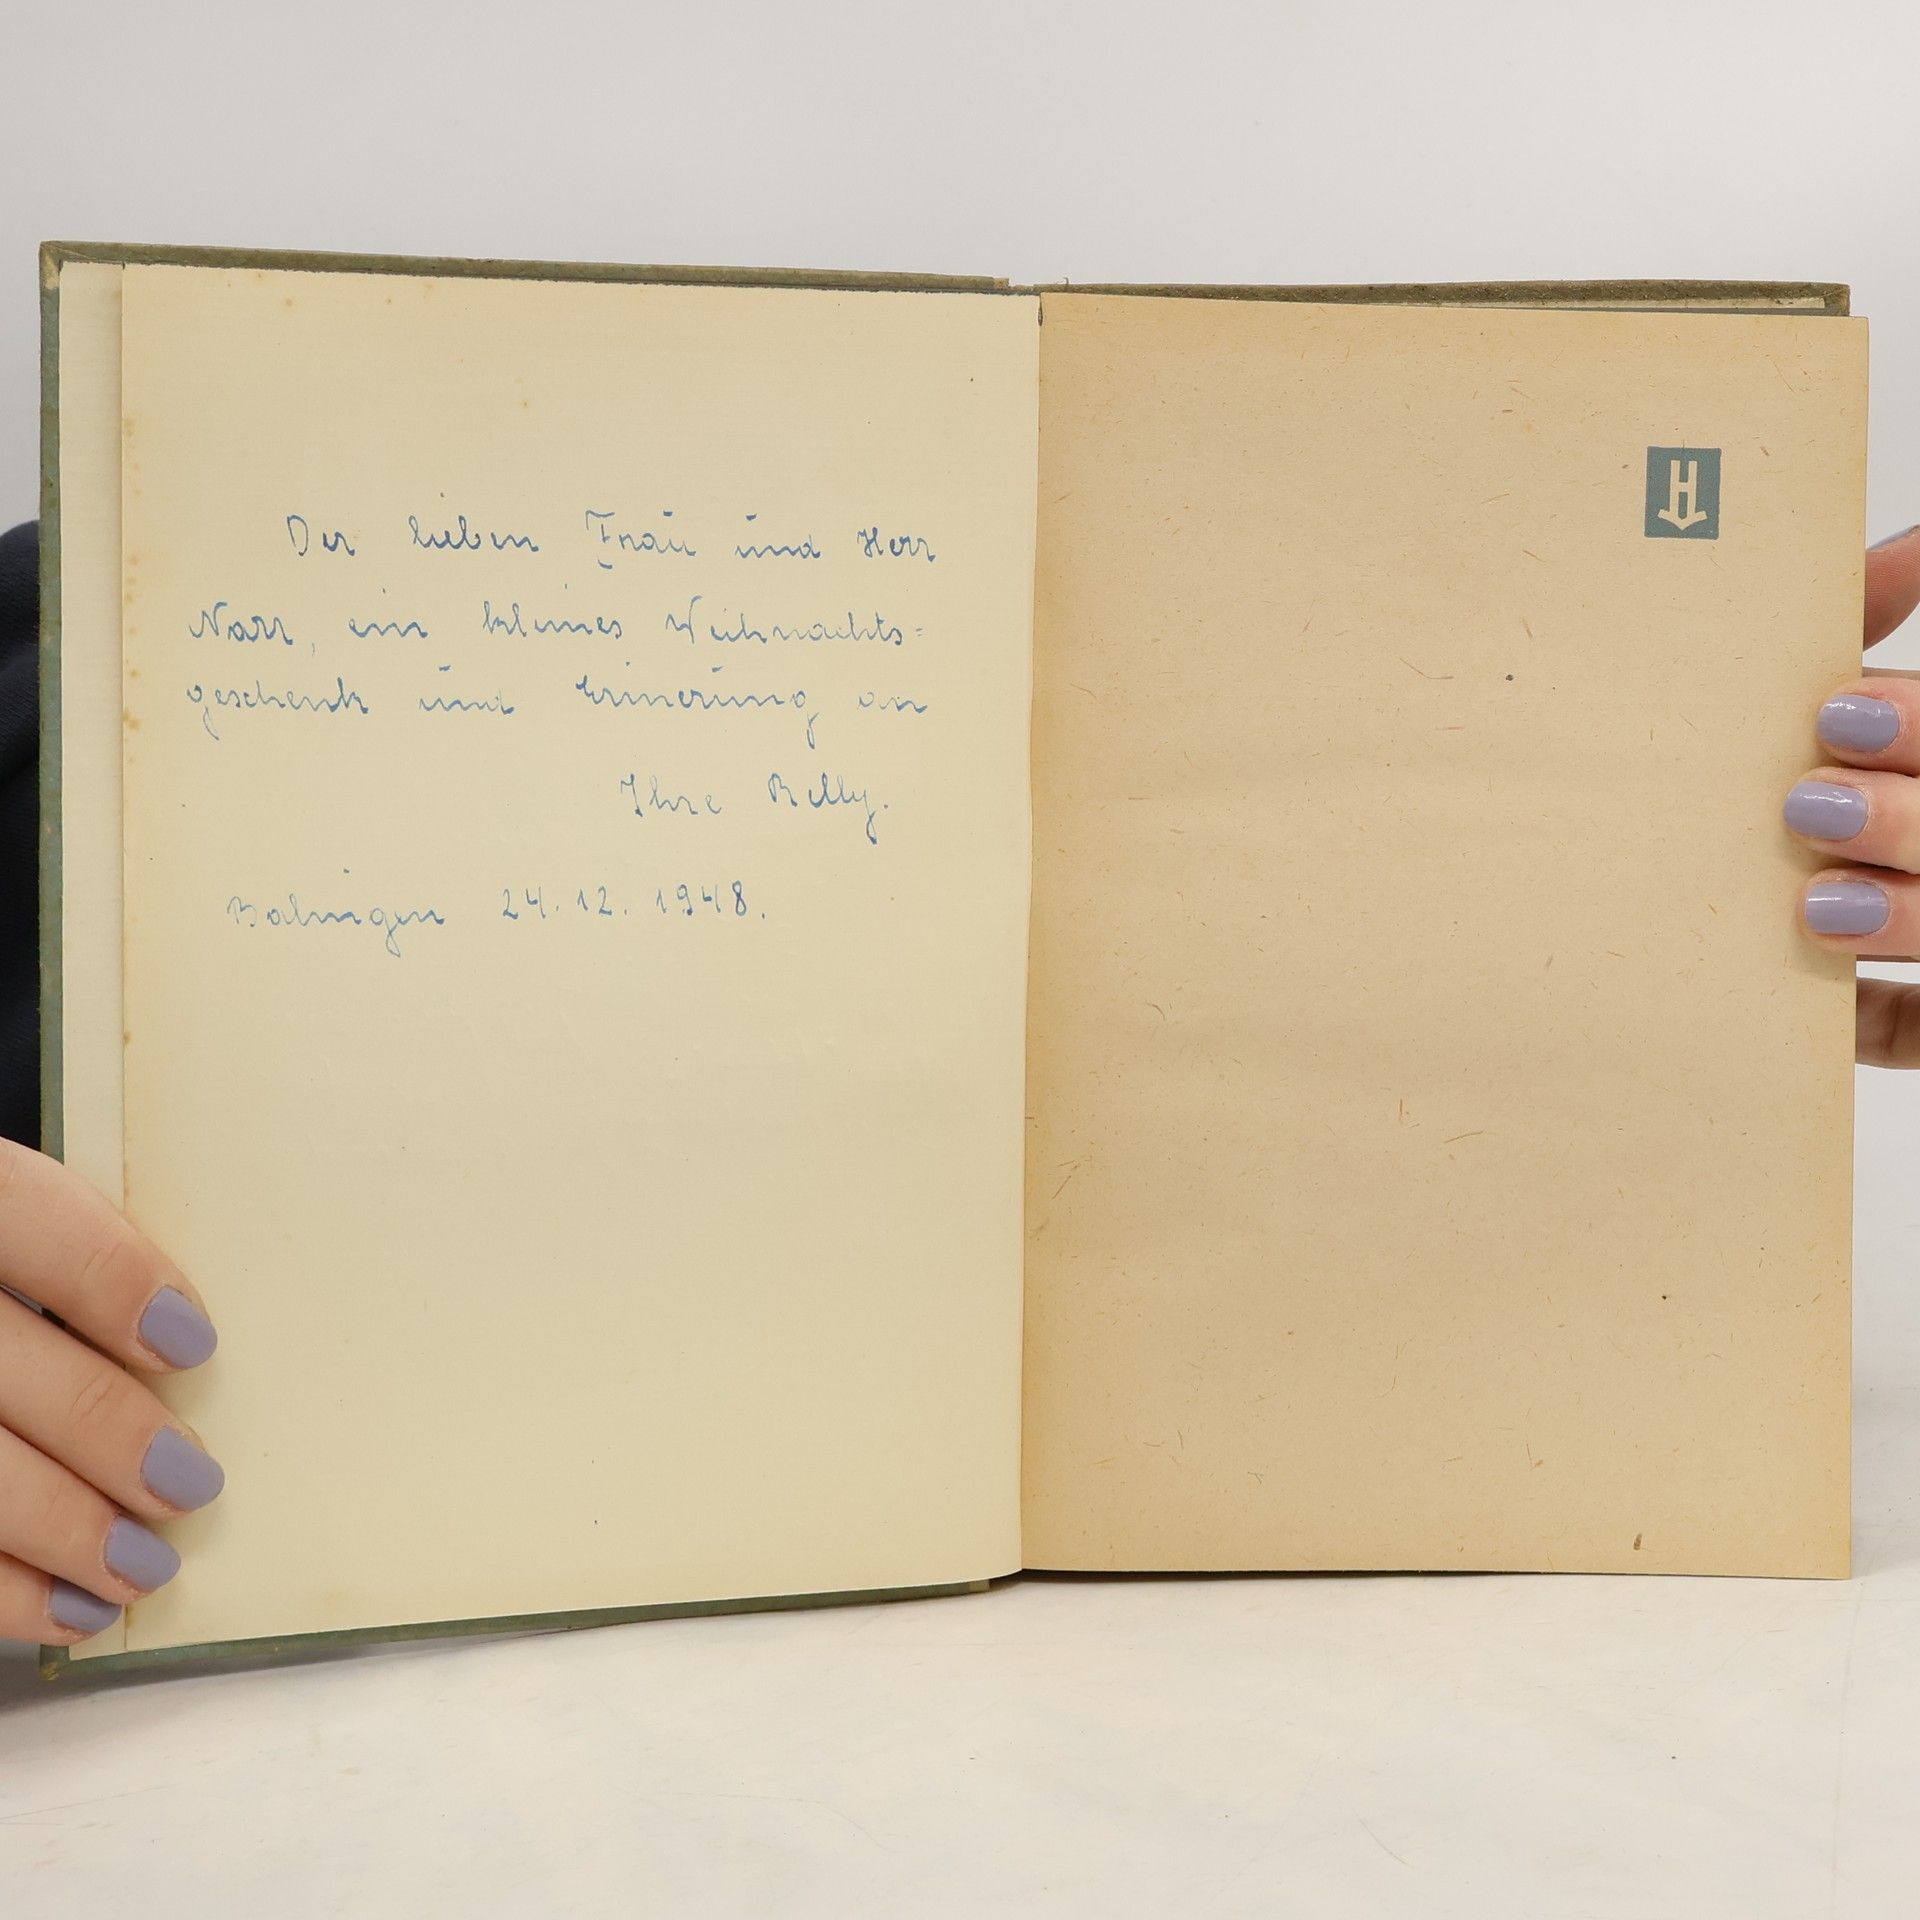 Der lieben Frau und Herr
Narr, ein kleines Weihnachts=
geschenk und Erinerung an
Ihre Belly.
Balingen 24.12.1948.
H